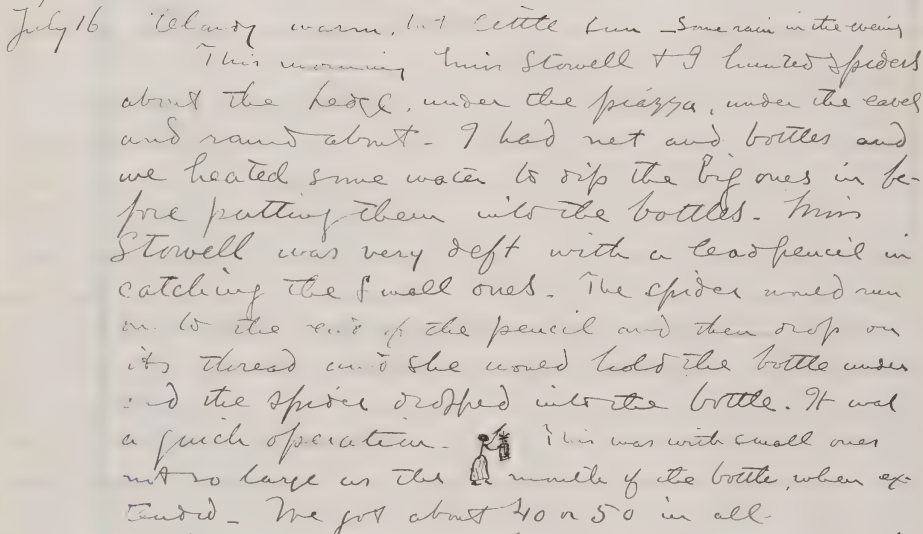 July 16 Cloudy warm, but little sun - Some rain in the evening
This morning Miss Stowell & I hunted spiders
about the hedge, under the piazza, under the eaves
and round about - I had net and bottles and
we heated some water to dip the big ones in be-
fore putting them into the bottles - Miss
Stowell was very deft with a leadpencil in
catching the small ones. The spider would run
on to the end of the pencil and then drop on
its thread and she would hold the bottle under
and the spider dropped into the bottle. It was
a quick operation - This was with small ones
not so large as the mouth of the bottle, when ex-
tended - We got about 40 or 50 in all-